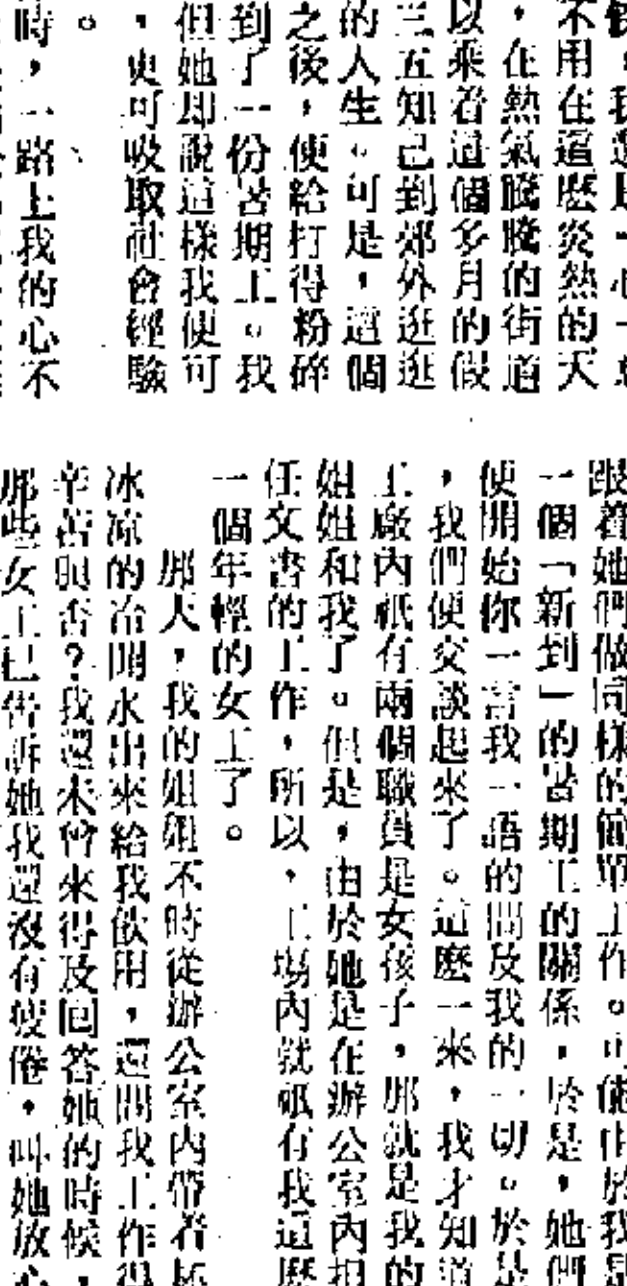 不用在這麼炎熱的天
，在熱氣騰騰的街道
以乘着這個多月的假
三五知己到郊外逛逛
的人生。可是，這個
之後，便給打得粉碎
到了一份暑期工。我
但她即說這樣我便可
，更可吸取社會經驗
。
時，一路上我的心不
跟着她們做同樣的簡單工作。可能由於我是
一個「新到」的暑期工的關係，於是，她們
便開始你一言我一語的問及我的一切。於是
，我們便交談起來了。這麼一來，我才知道
工廠內祇有兩個職員是女孩子，那就是我的
姐姐和我了。但是，由於她是在辦公室內担
任文書的工作，所以，工場內就祇有我這麼
一個年輕的女工了。
那天，我的姐姐不時從辦公室內帶着杯
冰凉的冶開水出來給我飲用，還問我工作得
辛苦與否？我還未曾來得及回答她的時候，
那些女工已告訴她我還沒有疲倦，叫她放心